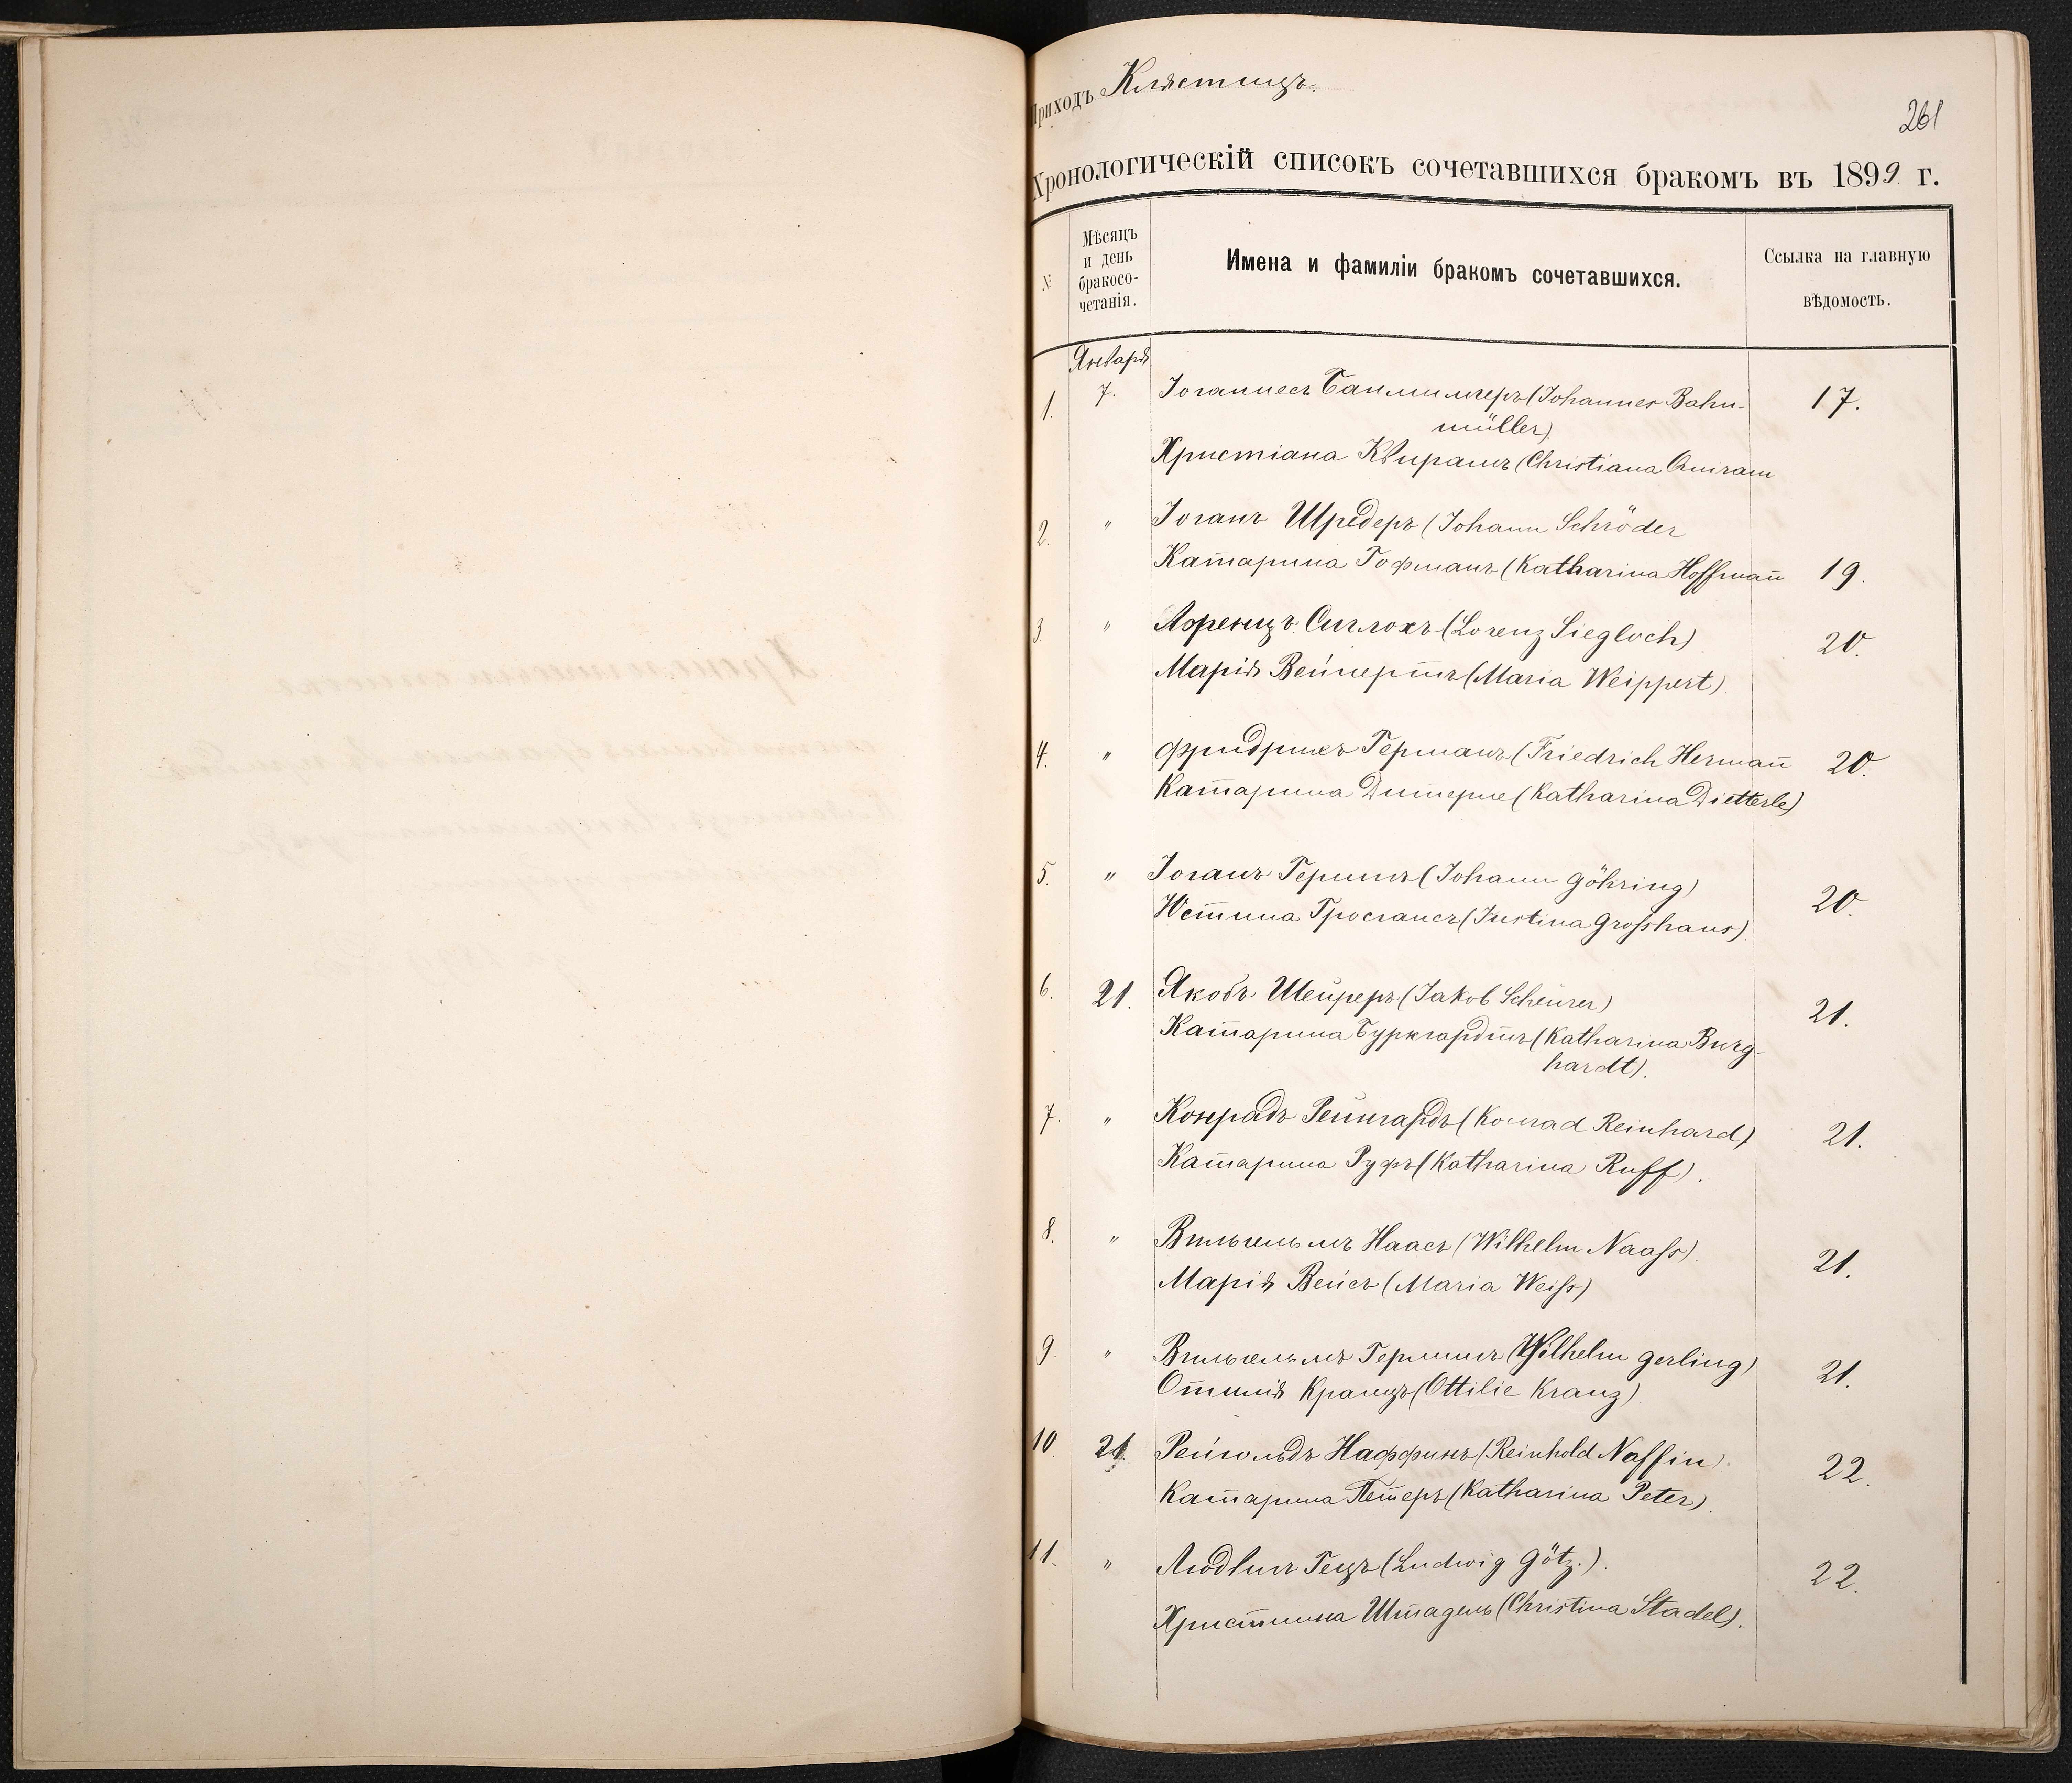 Приходъ Клястицъ.
261
Хронологическій списокъ сочетавшихся бракомъ въ 1899 г.
№
Мѣсяцъ
и день
бракосо-
четанія.
Имена и фамиліи бракомъ сочетавшихся.
Ссылка на главную
вѣдомость.
Января
1. 7. Іоганнесъ Банмиллеръ (Johannes Bahn- 17.
müller)
Христіана Квирамъ (Christiana Quiram
2. " Іоганъ Шредеръ (Johann Schröder
Катарина Гофманъ (Katharina Hoffman̄ 19.
3. " Лоренцъ Сиглохъ (Lorenz Siegloch) 20.
Марія Вейпертъ (Maria Weippert).
4. " Фридрихъ Германъ (Friedrich Herman̄ 20.
Катарина Дитерле (Katharina Dietterle)
5. " Іоганъ Герингъ (Johann Göhring) 20.
Юстина Гросгансъ (Justina Groſshans).
6. 21. Якобъ Шейреръ (Jakob Scheurer) 21.
Катарина Буркгардтъ (Katharina Burg-
hardt).
7. " Конрадъ Рейнгардъ (Konrad Reinhard) 21.
Катарина Руфъ (Katharina Ruff).
8. " Вильгельмъ Наасъ (Wilhelm Naaſs). 21.
Марія Вейсъ (Maria Weiſs)
9. " Вильгельмъ Герлингъ (Wilhelm Gerling) 21.
Отилія Кранцъ (Ottilie Kranz).
10. 21. Рейгольдъ Наффинъ (Reinhold Naffin). 22.
Катарина Петеръ (Katharina Peter).
11. " Людвигъ Гецъ (Ludwig Götz.). 22.
Христина Штадель (Christina Stadel).